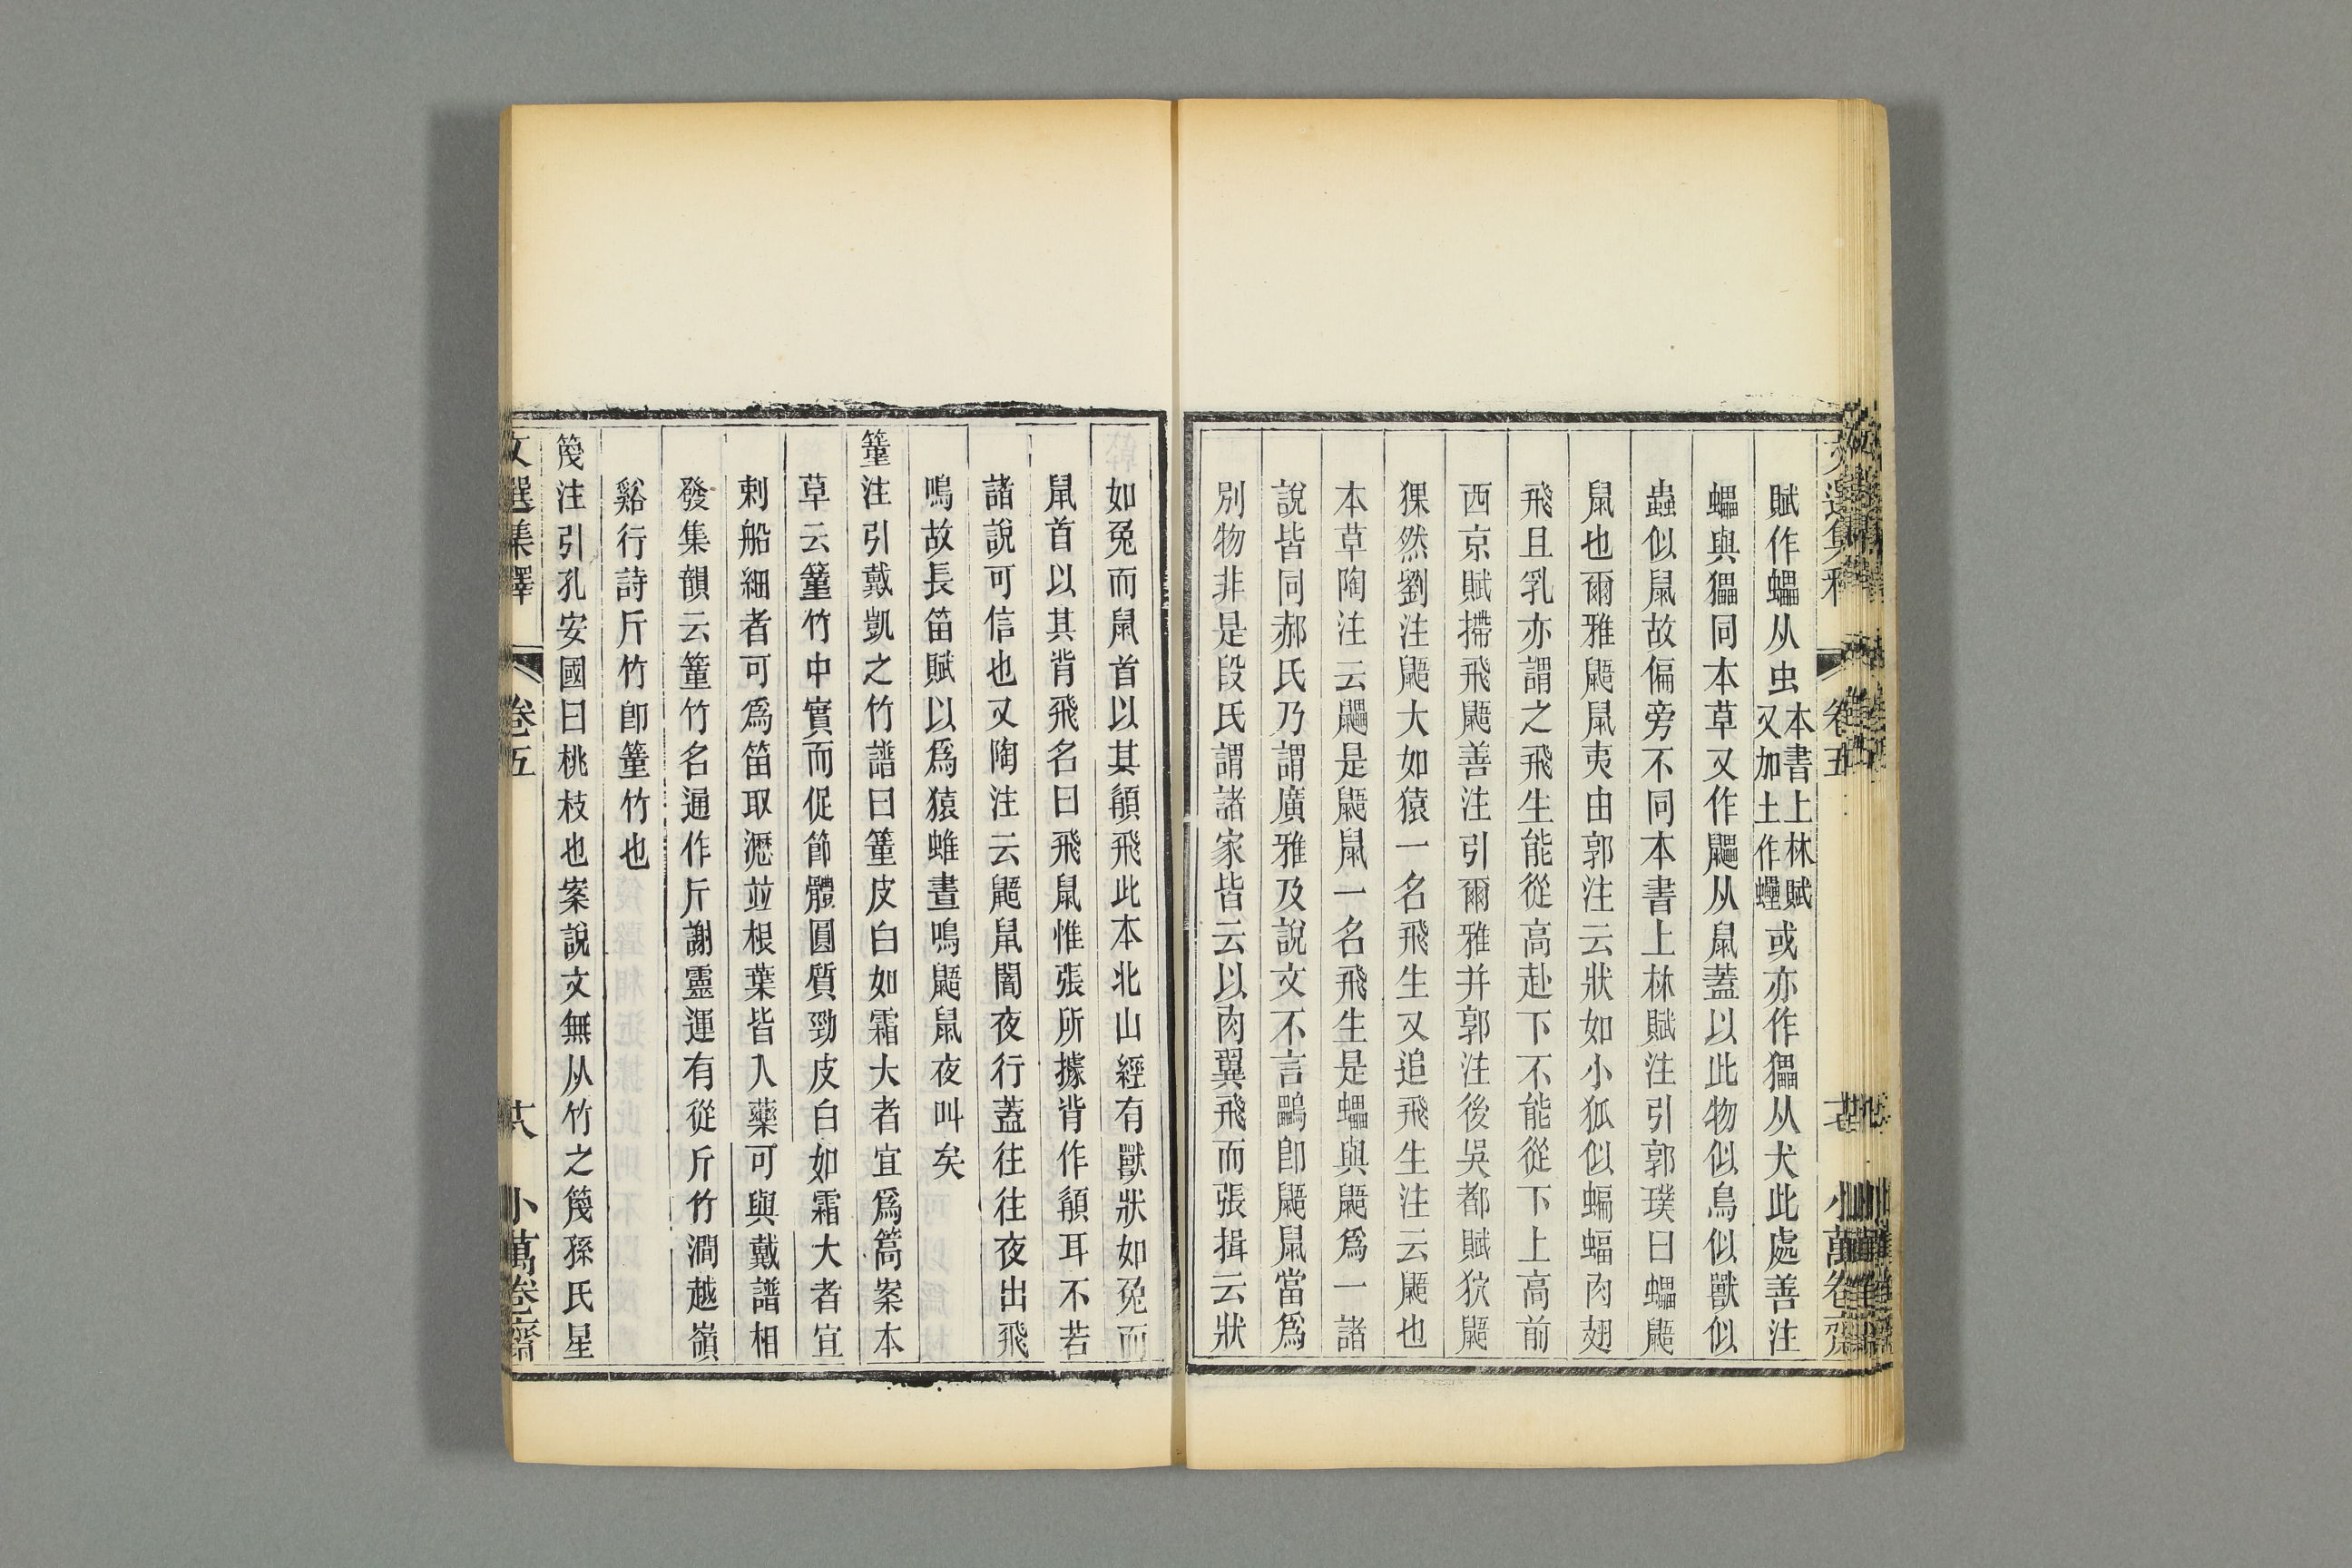 賦作蠝从虫本書上林賦又加土作蠝或亦作猵从犬此處善注
蠝與猵同本草又作鼺从鼠蓋以此物似鳥似獸似
蟲似鼠故偏旁不同本書上林賦注引郭璞曰蠝鼯
鼠也爾雅鼯鼠夷由郭注云狀如小狐似蝙蝠肉翅
飛且乳亦謂之飛生能從高赴下不能從下上高前
西京賦摕飛鼯善注引爾雅并郭注後吳都賦狖鼯
猓然劉注鼯大如猿一名飛生又追飛生注云鼯也
本草陶注云鼺是鼯鼠一名飛生是蠝與鼯爲一諸
說皆同郝氏乃謂廣雅及說文不言鸓卽鼯鼠當爲
別物非是段氏謂諸家皆云以肉翼飛而張揖云狀
如兔而鼠首以其顅飛此本北山經有獸狀如兔而
鼠首以其背飛名曰飛鼠惟張所據背作顅耳不若
諸說可信也又陶注云鼯鼠闇夜行蓋往往夜出飛
鳴故長笛賦以爲猿蜼晝鳴鼯鼠夜叫矣
䈄注引戴凱之竹譜曰䈄皮白如霜大者宜爲篙案本
草云䈄竹中實而促節體圓質勁皮白如霜大者宜
刺船細者可爲笛取瀝並根葉皆入藥可與戴譜相
發集韻云䈄竹名通作斤謝靈運有從斤竹澗越嶺
谿行詩斤竹卽䈄竹也
䈼注引孔安國曰桃枝也案說文無从竹之䈼孫氏星
文選集釋 卷五 六 小萬卷齋